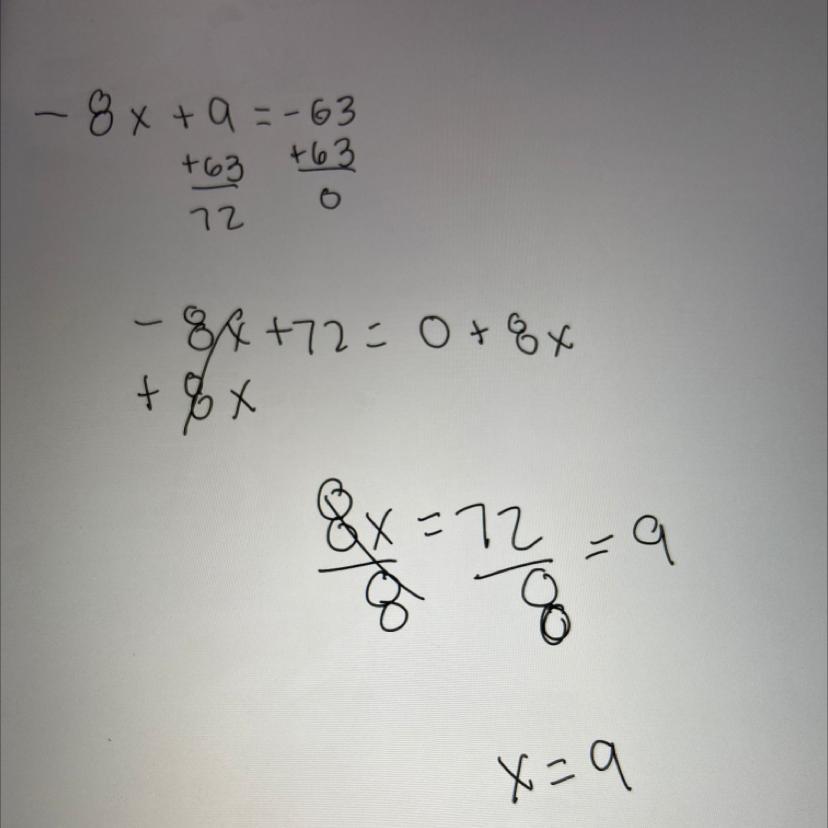 - 8x + 9 = -63
+63 +63
72 0
- 8x + 72 = 0 + 8x
+ 8x
8x = 72 = 9
8 8
x = 9